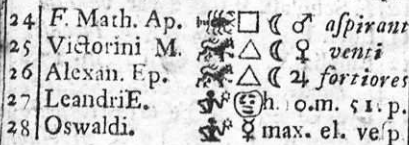 24 F. Math. Ap. □ ☾ ♂ aſpirant
25 Victorini M. △ ☾ ♀ venti
26 Alexan. Ep. △ ☾ ♃ fortiores
27 LeandriE. h. 0.m. 51. p.
28 Oswaldi. ☿ max. el. veſp